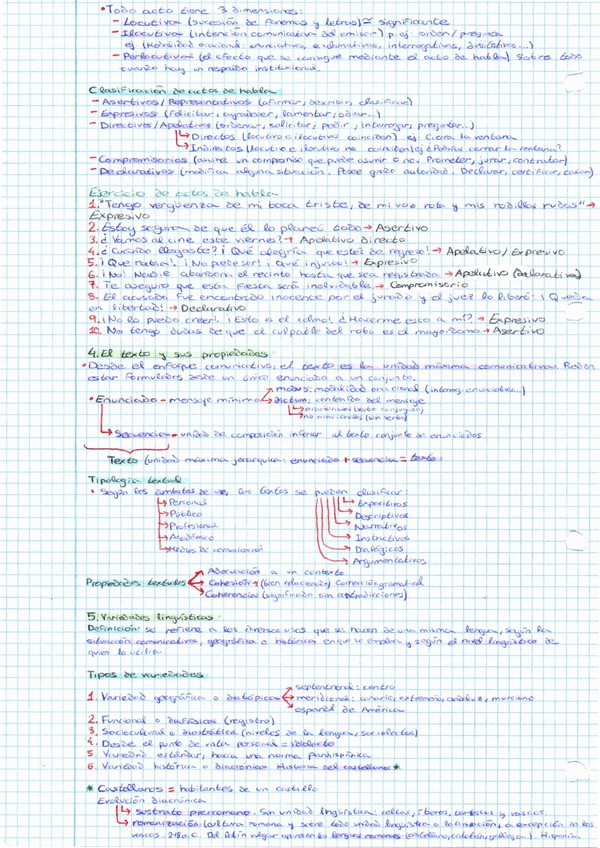 • Todo acto tiene 3 dimensiones:
– Locutivo (sucesión de fonemas y letras) ≈ significante
– Ilocutivo (intención comunicativa del emisor) p. ej. orden/pregunta
ej (Modalidad oracional: enunciativas, exclamativas, interrogativas, dubitativas...)
– Perlocutivo (el efecto que se consigue mediante el acto de habla) sobre todo
cuando hay un respaldo institucional.
Clasificación de actos de habla
– Asertivos/Representativos (afirmar, describir, clasificar)
– Expresivos (felicitar, agradecer, lamentar,
– Directivos/Apelativos (ordenar, solicitar, pedir, interrogar, preguntar...)
Directos (locutivo e ilocutivo coinciden) ej: Cierra la ventana
Indirectos (locutivo e ilocutivo no coinciden) ej ¿Podrías cerrar la ventana?
– Compromisorios (asume un compromiso que puede asumir o no. Prometer, jurar, contratar)
– Declarativos (modifica alguna situación. Posee grado autoridad. Declarar, certificar, casar)
Ejercicio de actos de habla
1. "Tengo vergüenza de mi boca triste, de mi voz rota y mis rodillas rudas" →
Expresivo
2. Estoy segura de que él lo planeó todo → Asertivo
3. ¿Vamos al cine este viernes? → Apelativo directo
4. ¿Cuándo llegaste? ¡Qué alegría que estés de regreso! → Apelativo / Expresivo
5. ¡Qué rabia! ¡No puede ser! ¡Qué injusto! → Expresivo
6. ¡No! Nadie abandona el recinto hasta que sea registrado → Apelativo (declarativo)
7. Te aseguro que esta fiesta será inolvidable → Compromisorio
8. El acusado fue encontrado inocente por el jurado y el juez lo liberó: ¡Queda
en libertad! → Declarativo
9. ¡No lo puedo creer! ¡Esto es el colmo! ¿Hacerme esto a mí? → Expresivo
10. No tengo dudas de que el culpable del robo es el mayordomo → Asertivo
4. El texto y sus propiedades
• Desde el enfoque comunicativo, el texto es la unidad máxima comunicativa. Pueden
estar formulados desde un único enunciado a un conjunto.
modus: modalidad oracional (interrog. enunciativa...)
• Enunciado – mensaje mínimo dictum: contenido del mensaje
oracionales (verbo conjugado)
no oracionales (sin verbo)
Secuencia – unidad de composición inferior al texto conjunto de enunciados
Texto (unidad máxima jerarquía: enunciado + secuencia = texto
Tipología textual
• Según los ámbitos de uso, los textos se pueden clasificar:
Personal Expositivos
Público Descriptivos
Profesional Narrativos
Académico Instructivos
Medios de comunicación Dialógicos
Argumentativos
Adecuación a un contexto
Propiedades textuales Cohesión → (bien relacionado) Corrección gramatical
Coherencia (significado sin contradicciones)
5. Variedades lingüísticas
Definición: se refiere a los diversos usos que se hacen de una misma lengua, según la
situación comunicativa, geográfica o histórica en que se emplea y según el nivel lingüístico de
quien lo utiliza.
Tipos de variedades
septentrional: centro
1. Variedad geográfica o diatópica meridional: canario, extremeño, andaluz, murciano
español de América
2. Funcional o diafásica (registro)
3. Sociocultural o diastrática (niveles de la lengua, sociolectos)
4. Desde el punto de vista personal = idiolecto
5. Variedad estándar, hacia una norma panhispánica
6. Variedad histórica o diacrónica Historia del castellano *
* Castellanos = habitantes de un castillo
Evolución diacrónica
sustrato prerromano. Sin unidad lingüística: celtas, íberos, tartesios y vascos.
romanización (cultura romana y sobre todo unidad lingüística o latinización, a excepción de los
vascos. 218 a.C. Del latín vulgar aparecen las lenguas romances (castellano, catalán, gallego,...). Hispania.